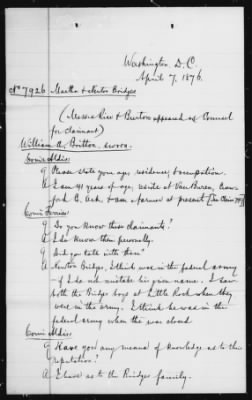 Washington D.C.
April 7, 1876.
No 7926 Martha & Newton Bridges
(Messrs Rice & Burton appeared as Council
for claimant)
William A. Britton, sworn.
Com'r Aldis:
Q Please state your age, residence, & occupation.
A I am 41 years of age, reside at Van Buren, Craw-
ford Co. Ark. & am a farmer at present
Com'r Ferriss:
Q Do you know these claimants?
A I do know them personally.
Q Did you talk with them
A Newton Bridges, I think was in the federal army
- if I do not mistake his given name. I saw
both the Bridges boys at Little Rock when they
were in the army. I think he was in the
federal army when the war closed
Com'r Aldis:
Q Have you any means of knowledge as to their
reputation?
A I have as to the Bridges family.